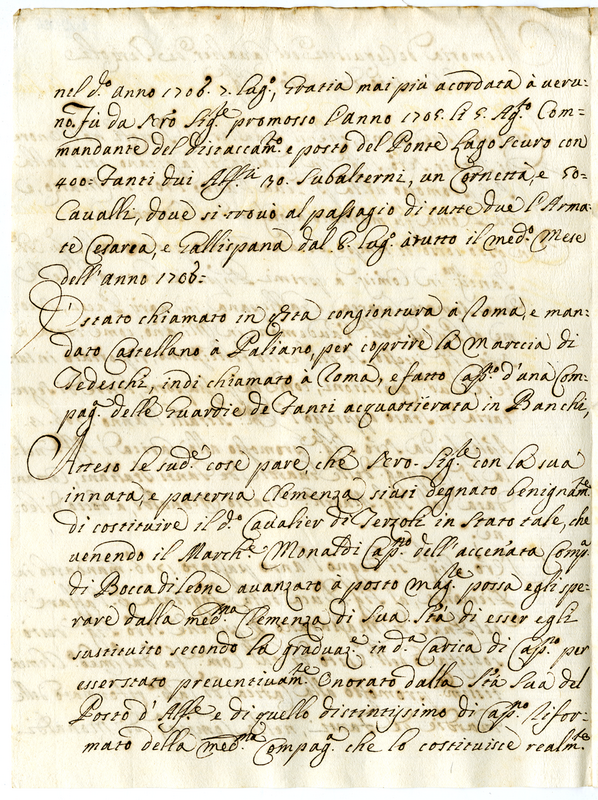 nel d.o anno 1706. 7. Lug.o, Gratia mai più acordata à veru=
no. Fù da Nro Sig.re promosso l'anno 1705. li 5. Ag.to Com=
mandante del distaccam.to e posto del Ponte Lago scuro con
400: Fanti dui Aff.li 30. Subalterni, un Cornetta, e 50=
Cavalli, dove si trovò al passagio di tutte due l'Arma=
te Cesarea, e Gallispana dal 6. Lug.o à tutto il med.o Mese
dell'anno 1706:
E' stato chiamato in q.sta congiontura à Roma, e man=
dato Castellano à Paliano, per coprire la Marccia di
Tedeschi, indi chiamato à Roma, e fatto Cap.no d'una Com=
pag.a delle Guardie de Fanti acquartierata in Banchi,
Atteso le sud.e cose pare che Nro-Sig.re con la sua
innata, e paterna Clemenza siasi degnato benignam.te
di costituire il d.o Cavalier di Tersoli in Stato tale, che
venendo il March.e Monaldi Cap.no dell'accen'ata Comp.a
di Bocca di Leone avanzato à posto mag.re possa egli spe=
rare dalla med.ma Clemenza di Sua S.tà di esser egli
sustituito secondo la graduaz.e in d.a Carica di Cap.no per
esser stato preventivam.te Onorato dalla S.tà Sua del
Posto d'Alf.re e di quello distintissimo di Cap.no Rifor=
mato della med.ma Compag.a che lo costituisce realm.te